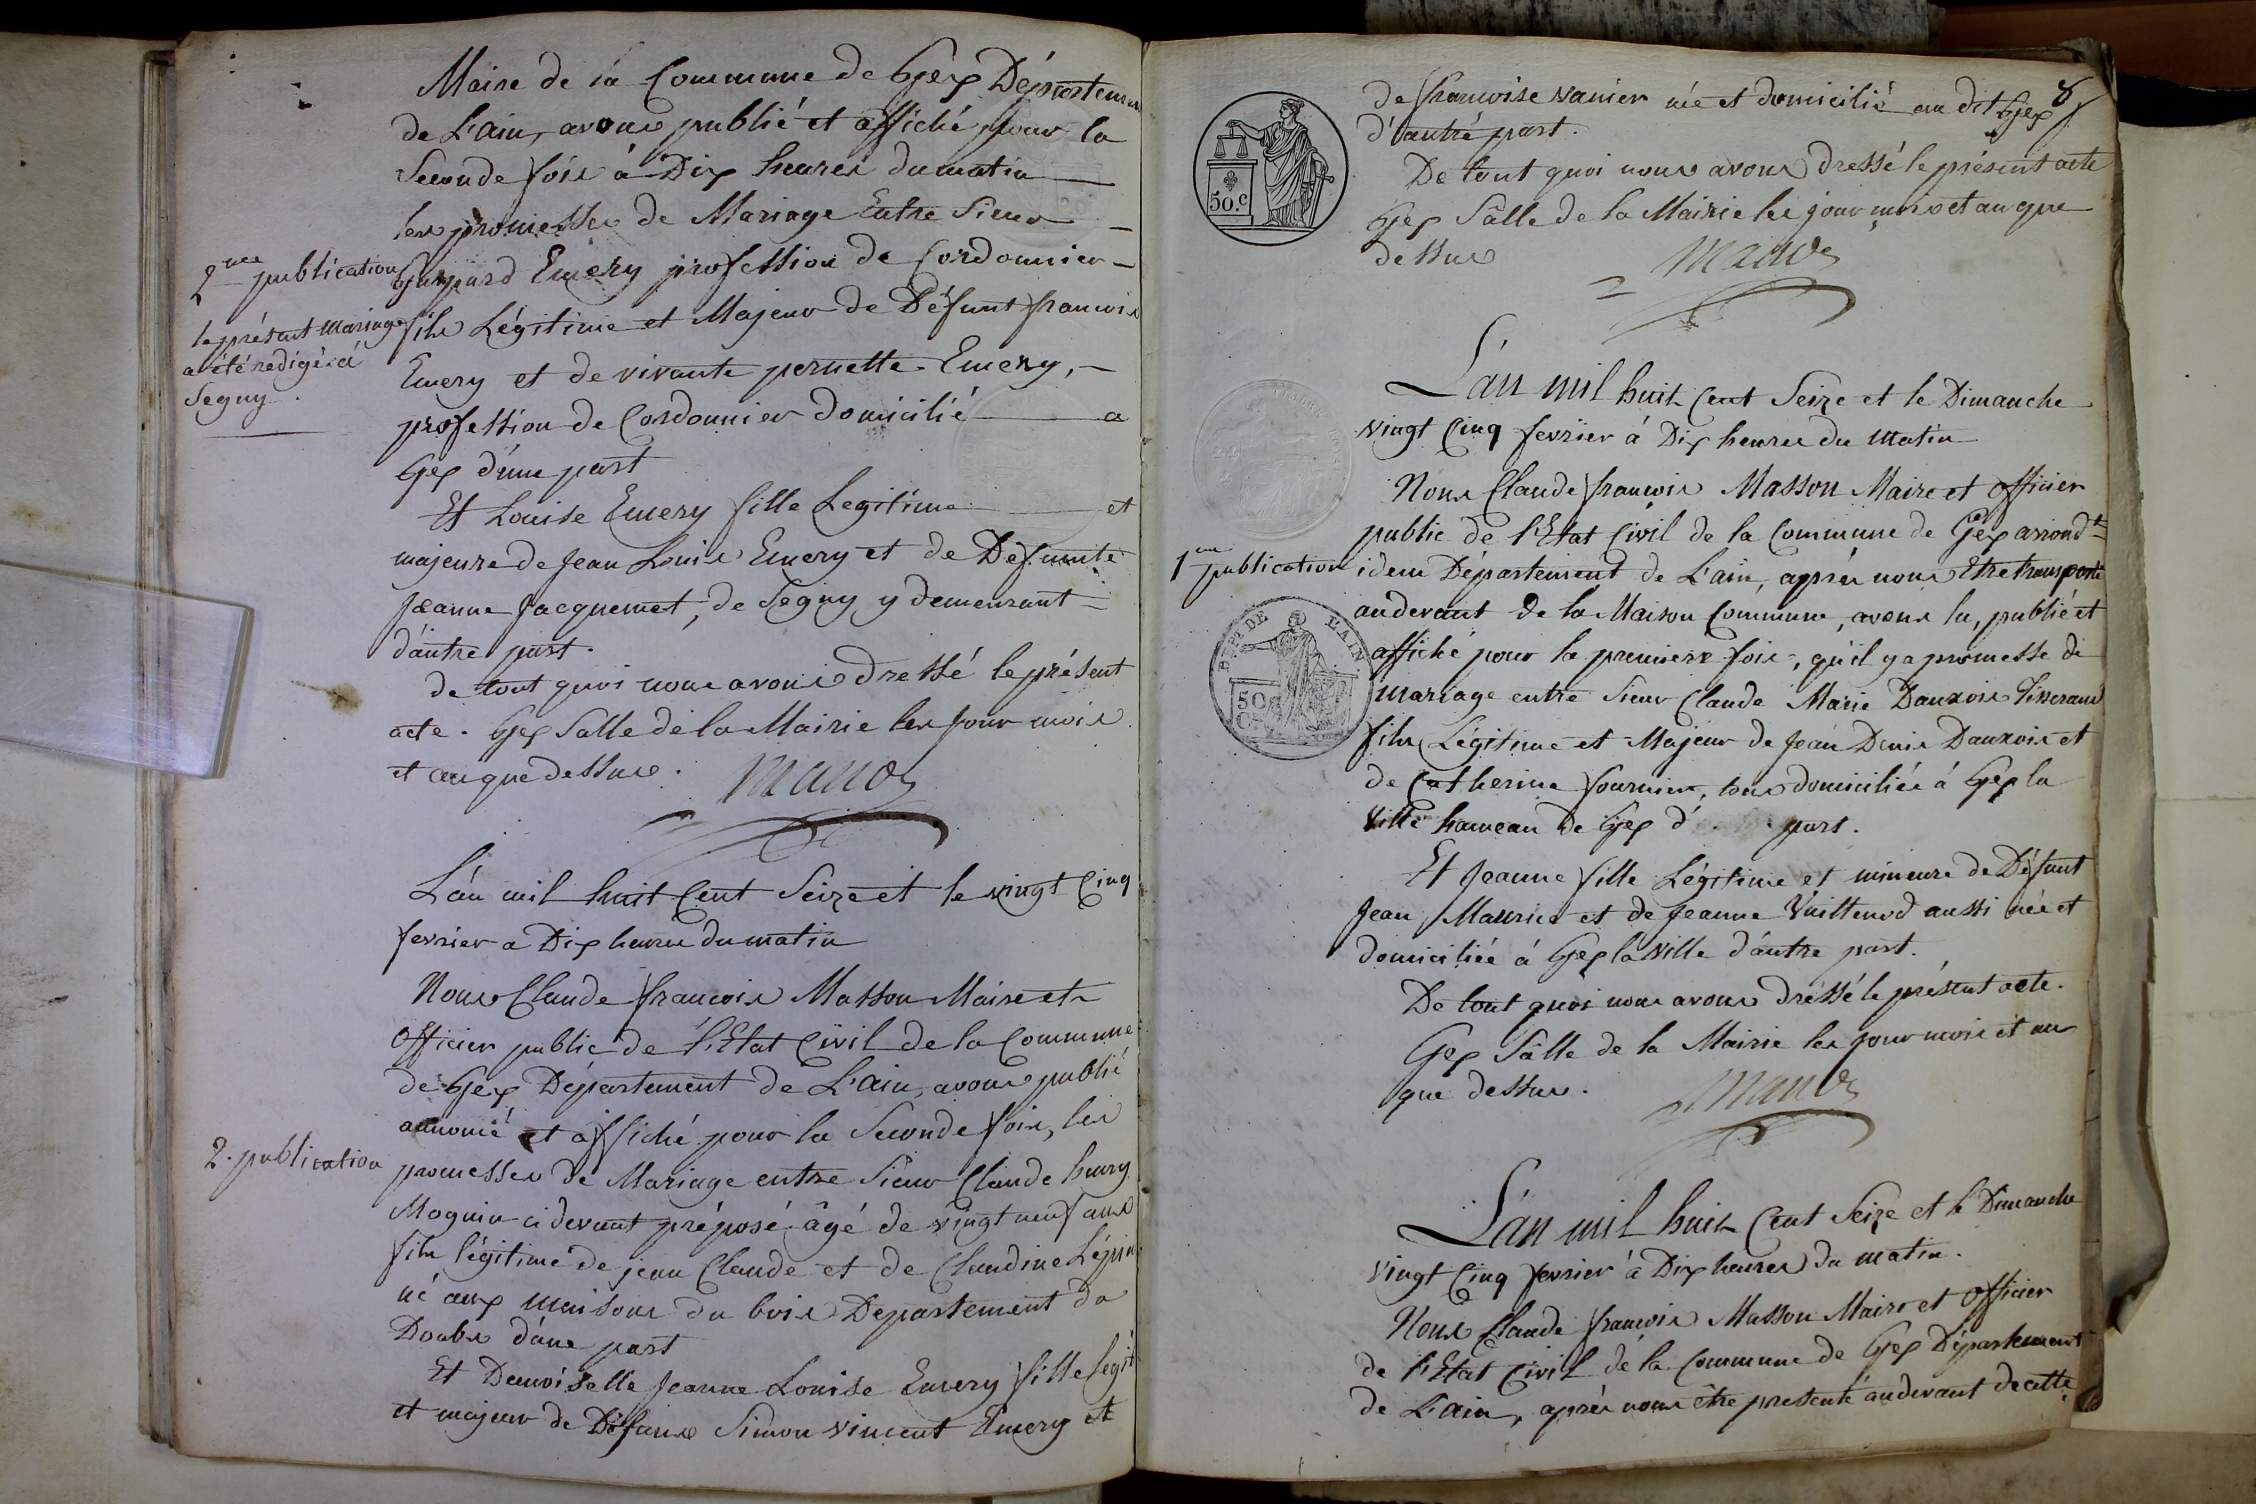 Maire de la Commune de Gèx Départemen
de L'ain, avons publié et affiché pour la
Seconde fois à Dix heures du matin
les promesses de Mariage Entre Sieur
2me publication
Gaspard Emery profession de Cordonnier
le présent mariage
a été redigé à
Segny.
fils Légitime et Majeur de Défunt francois
Emery et de vivante pernette Emery,
profession de Cordonnier domicilié a
Gex d'une part
Et Louise Emery fille Legitime et
majeure de Jean Louis Emery et de Defunte
Jeanne Jacquemet, de Segny y demeurant
d'autre part.
de tout quoi nous avons dressé le présent
acte. Gex Salle de la Mairie les jour mois
et an que dessus. Masson
L'an mil huit Cent Seize et le vingt Cinq
fevrier a Dix heures du matin
Nous Claude francois Masson Maire et
officier public de l'Etat Civil de la Commune
de Gex Département de L'ain, avons publié
annoncé et affiché pour la Seconde fois, les
2. publication
promesses de Mariage entre Sieur Claude henry
Moguin ci devant préposé âgé de vingt neuf ans
fils légitime de jean Claude et de Claudine Lépin
né aux maisons du bois Departement du
Doubs d'une part
Et Demoiselle Jeanne Louise Emery fille légit
et majeur de Défunt Simon Vincent Emery et
8
de francoise vanier née et domicilié au dit Gex
d'autre part.
De tout quoi nous avons dressé le présent acte
Gex Sâlle de la Mairie les jour mois et an que
dessus Masson
50.c
L'an mil huit Cent Seize et le Dimanche
vingt Cinq fevrier à Dix heures du matin
Nous Claude francois Masson Maire et officier
public de l'Etat Civil de la Commune de Gèx arrondt
1ere publication
idem Département de L'ain, après nous Etre transporté
au devant de la Maison Commune, avons lu, publié et
DEPt DE L'AIN
50 C
affiché pour la premiere fois, qu'il y a promesse de
mariage entre Sieur Claude Marie Dauxois Tisserand
fils Légitime et Majeur de Jean Denis Dauxois et
de Catherine fournier, tous domiciliés à Gèx la
Ville hameau de Gex d' part.
Et Jeanne fille Légitime et mineure de Défunt
Jean Maurice et de Jeanne Vuillerod aussi née et
domiciliée à Gex la ville d'autre part.
De tout quoi nous avons dréssé le présent acte.
Gex Sâlle de la Mairie les jour mois et an
que dessus. Masson
L'an mil huit Cent Seize et le Dimanche
vingt Cinq fevrier à Dix heures du matin.
Nous Claude francois Masson Maire et officier
de l'Etat Civil de la Commune de Gex Département
de L'ain, après nous être presenté au devant de cette